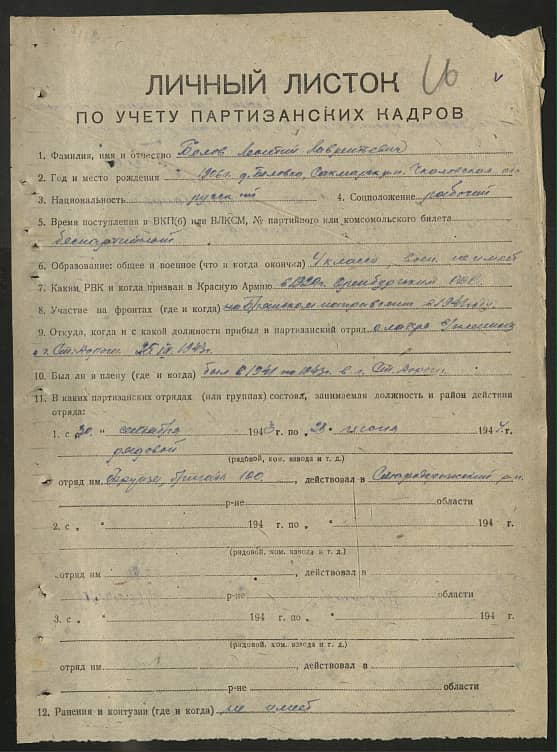 ЛИЧНЫЙ ЛИСТОК
ПО УЧЕТУ ПАРТИЗАНСКИХ КАДРОВ
1. Фамилия, имя и отчество Белов Леонтий Лаврентьевич
2. Год и место рождения 1906 г. д. Беловка, Сакмарск. р-н Чкаловская об.
3. Национальность русский 4. Соцположение рабочий
5. Время поступления в ВКП(б) или ВЛКСМ, № партийного или комсомольского билета
беспартийный
6. Образование: общее и военное (что и когда окончил) 4 класса, воен. не имеет
7. Каким РВК и когда призван в Красную Армию в Оренбургский РВК
8. Участие на фронтах (где и когда) на Брянском направлении в 1941 году
9. Откуда, когда и с какой должности прибыл в партизанский отряд с лагеря
в г. Ст. Дороги 1943 г.
10. Был ли в плену (где и когда) был в 1941 по 1943 г. в г. Ст. Дороги
11. В каких партизанских отрядах (или группах) состоял, занимаемая должность и район действии
отряда:
1. с „20 " сентября 1943 г. по „ " июня 1944 г.
рядовой
(рядовой, ком. взвода и т. д.)
отряд им. Фрунзе, бригада 100, действовал в Стародорожский р-н
р-не области
2. с „ " 194 г. по „ " 194 г.
(рядовой, ком. взвода и т. д.)
отряд им , действовал в
р-не области
3. с „ " 194 г. по „ " 194 г.
(рядовой, ком. взвода и т. д.)
отряд им. , действовал в
р-не области
12. Ранения и контузии (где и когда) не имеет